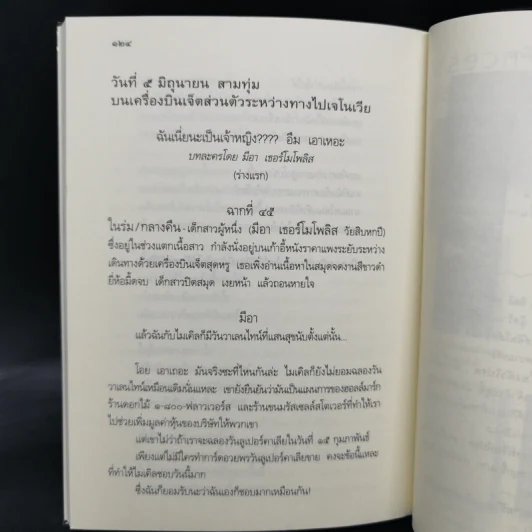 ๑๒๔
วันที่ ๕ มิถุนายน สามทุ่ม
บนเครื่องบินเจ็ตส่วนตัวระหว่างทางไปเจโนเวีย
ฉันเนี่ยนะเป็นเจ้าหญิง???? อืม เอาเหอะ
บทละครโดย มีอา เธอร์โมโพลิส
(ร่างแรก)
ฉากที่ ๔๕
ในร่ม/กลางคืน - เด็กสาวผู้หนึ่ง (มีอา เธอร์โมโพลิส วัยสิบหกปี)
ซึ่งอยู่ในช่วงแตกเนื้อสาว กำลังนั่งอยู่บนเก้าอี้หนังราคาแพงระยับระหว่าง
เดินทางด้วยเครื่องบินเจ็ตสุดหรู เธอเพิ่งอ่านเนื้อหาในสมุดจดงานสีขาวดำ
ยี่ห้อมี้ดจบ เด็กสาวปิดสมุด เงยหน้า แล้วถอนหายใจ
มีอา
แล้วฉันกับไมเคิลก็มีวันวาเลนไทน์ที่แสนสุขนับตั้งแต่นั้น...
โอย เอาเถอะ มันจริงซะที่ไหนกันล่ะ ไมเคิลก็ยังไม่ยอมฉลองวัน
วาเลนไทน์เหมือนเดิมนั่นแหละ เขายังยืนยันว่ามันเป็นแผนการของฮอลล์มาร์ก
ร้านดอกไม้ ๑-๘๐๐-ฟลาวเวอร์ส และร้านขนมรัสเซลล์สโตเวอร์ที่ทำให้เรา
ไปช่วยเพิ่มมูลค่าหุ้นของบริษัทให้พวกเขา
แต่เขาไม่ว่าถ้าเราจะฉลองวันลูเปอร์คาเลียในวันที่ ๑๕ กุมภาพันธ์
เพียงแต่ไม่มีใครทำการ์ดอวยพรวันลูเปอร์คาเลียขาย คงจะข้อนี้แหละ
ที่ทำให้ไมเคิลชอบวันนี้มาก
ซึ่งฉันก็ยอมรับนะว่าฉันเองก็ชอบมากเหมือนกัน)